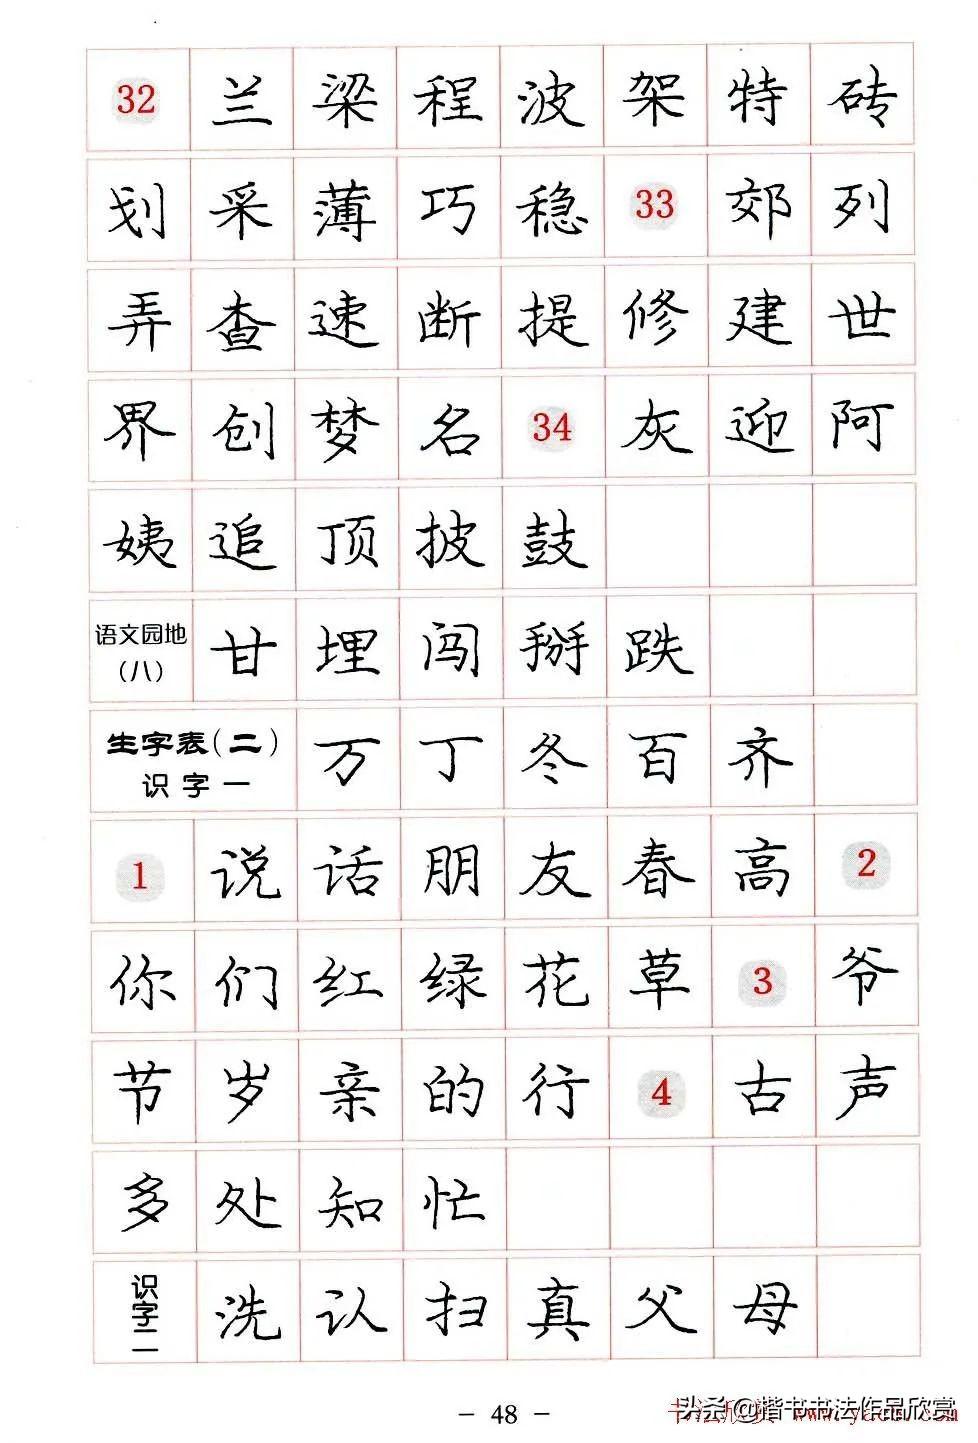 32 兰 梁 程 波 架 特 砖
划 采 薄 巧 稳 33 郊 列
弄 查 速 断 提 修 建 世
界 创 梦 名 34 灰 迎 阿
姨 追 顶 披 鼓
语文园地(八) 甘 埋 闯 掰 跌
生字表(二)
识字一 万 丁 冬 百 齐
1 说 话 朋 友 春 高 2
你 们 红 绿 花 草 3 爷
节 岁 亲 的 行 4 古 声
多 处 知 忙
识字二 洗 认 扫 真 父 母
- 48 -
头条@楷书书法作品欣赏